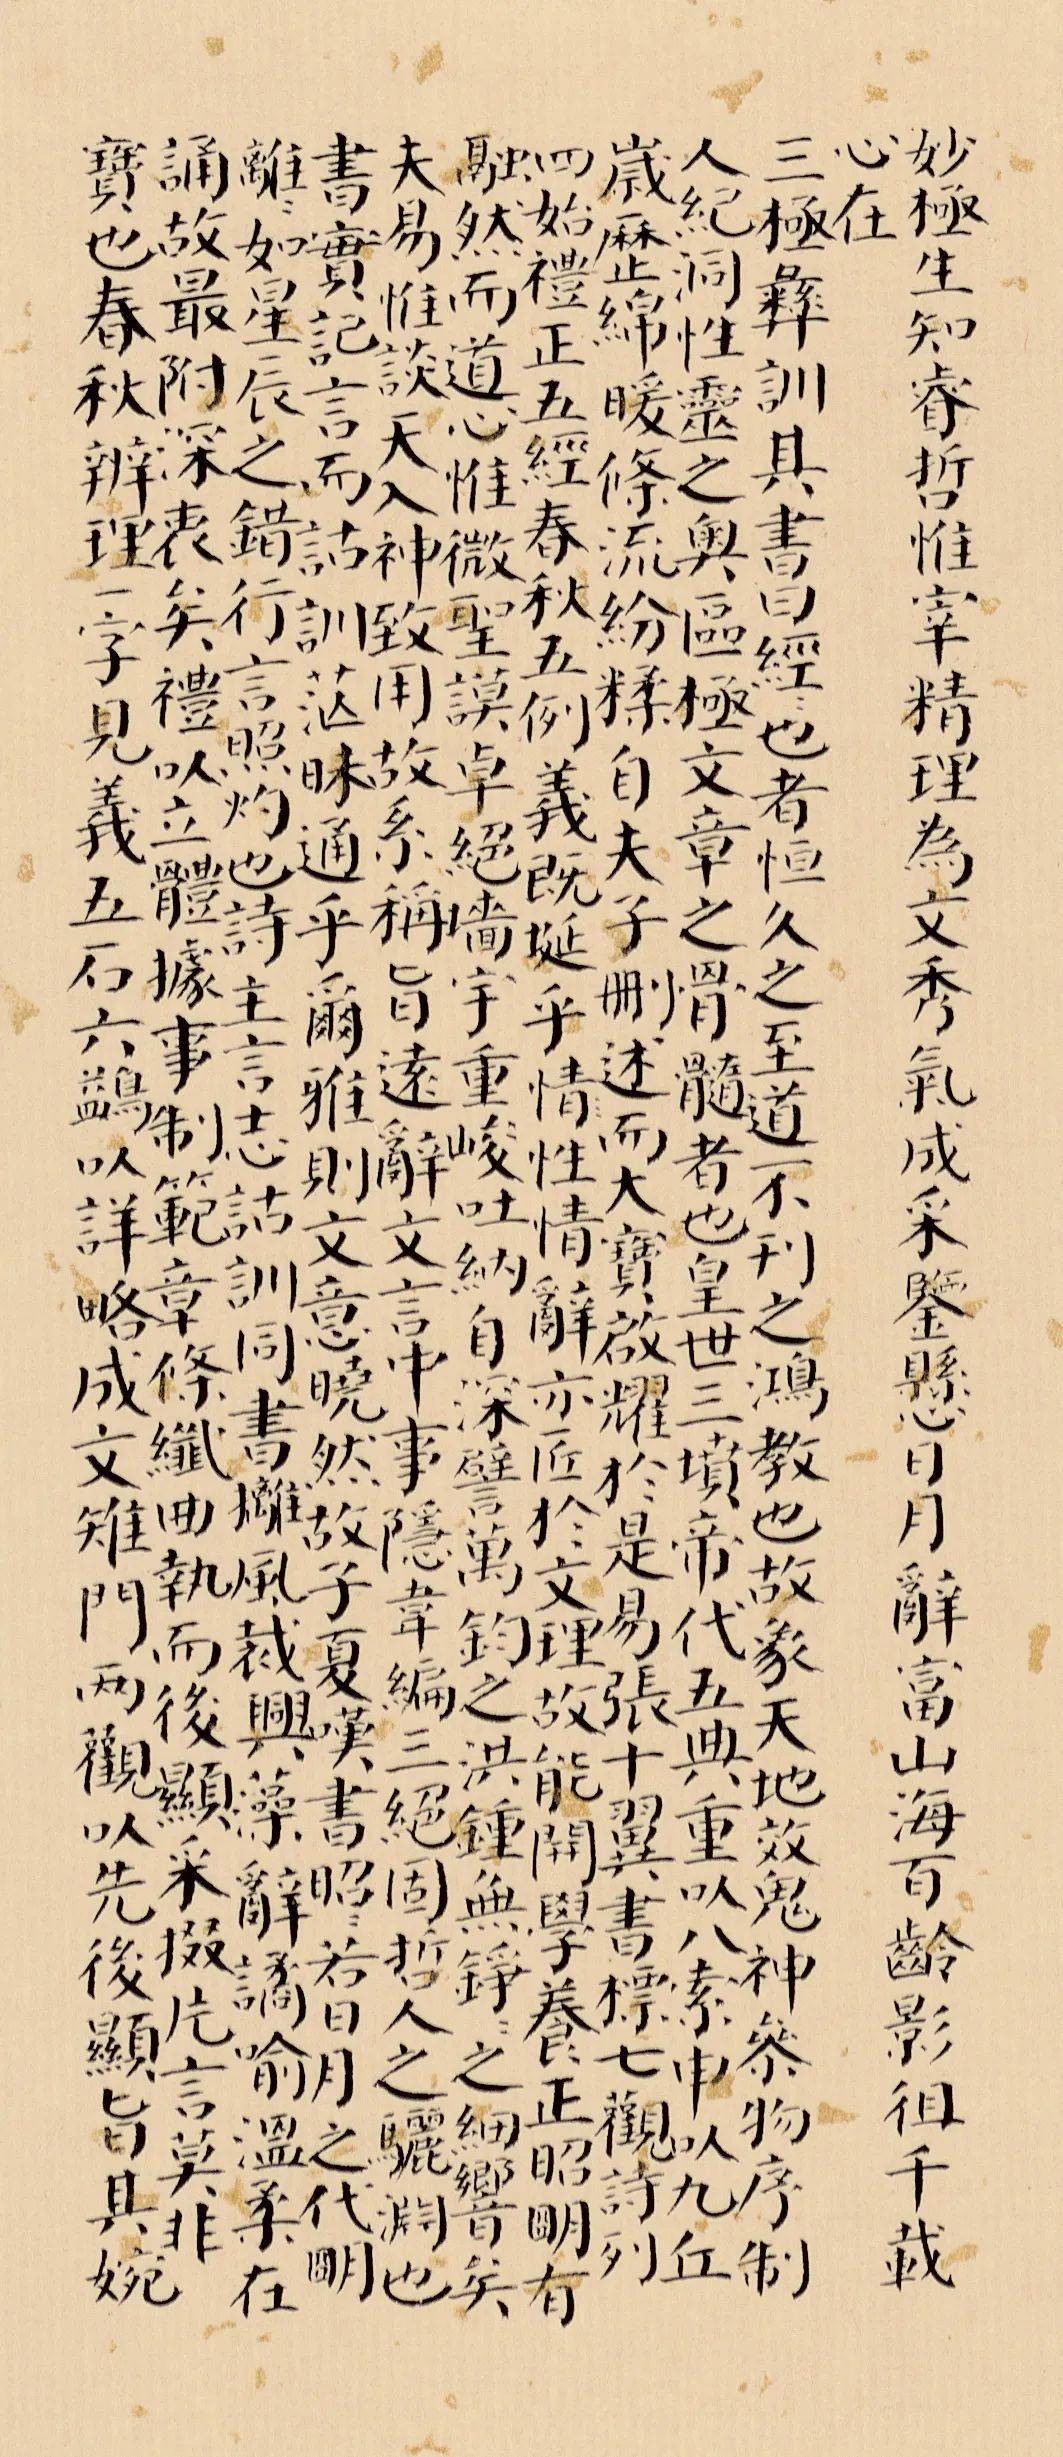 妙極生知睿哲惟宰精理為文秀氣成采鑒懸日月辭富山海百齡影徂千載
心在
三極彝訓其書曰經〻也者恒久之至道不刊之鴻教也故象天地效鬼神參物序制
人紀洞性靈之奧區極文章之骨髓者也皇世三墳帝代五典重以八索申以九丘
歲歷綿曖條流紛糅自夫子刪述而大寶啟耀於是易張十翼書標七觀詩列
四始禮正五經春秋五例義既埏乎情性情辭亦匠於文理故能開學養正昭明有
融然而道心惟微聖謨卓絕墻宇重峻吐納自深譬萬鈞之洪鍾無錚〻之細響矣
夫易惟談天入神致用故系稱旨遠辭文言中事隱韋編三絕固哲人之驪淵也
書實記言而詁訓茫昧通乎爾雅則文意曉然故子夏嘆書昭〻若日月之代明
離〻如星辰之錯行言照灼也詩主言志詁訓同書摛風裁興藻辭譎喻溫柔在
誦故最附深衷矣禮以立體據事制範章條纖曲執而後顯采掇片言莫非
寶也春秋辨理一字見義五石六鷁以詳略成文雉門兩觀以先後顯旨其婉